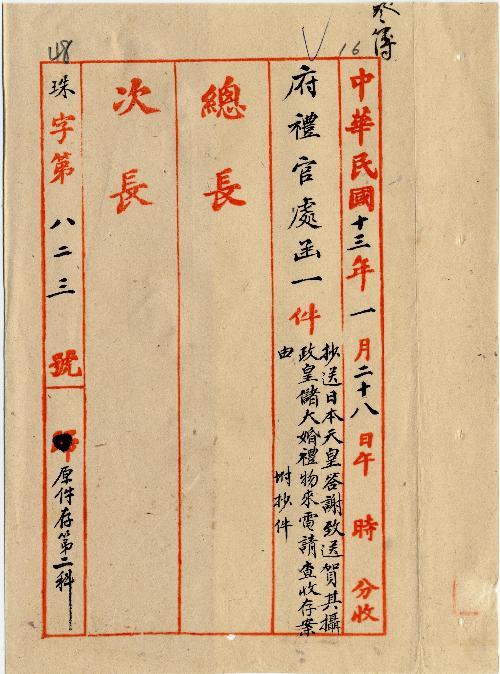 登簿
16
48
中華民國十三年一月二十八日午 時 分收
府禮官處函一件
抄送日本天皇答謝致送賀其攝
政皇儲大婚禮物來電請查收存案
由 附抄件
總長
次長
珠字第八二三號
原件存第二科